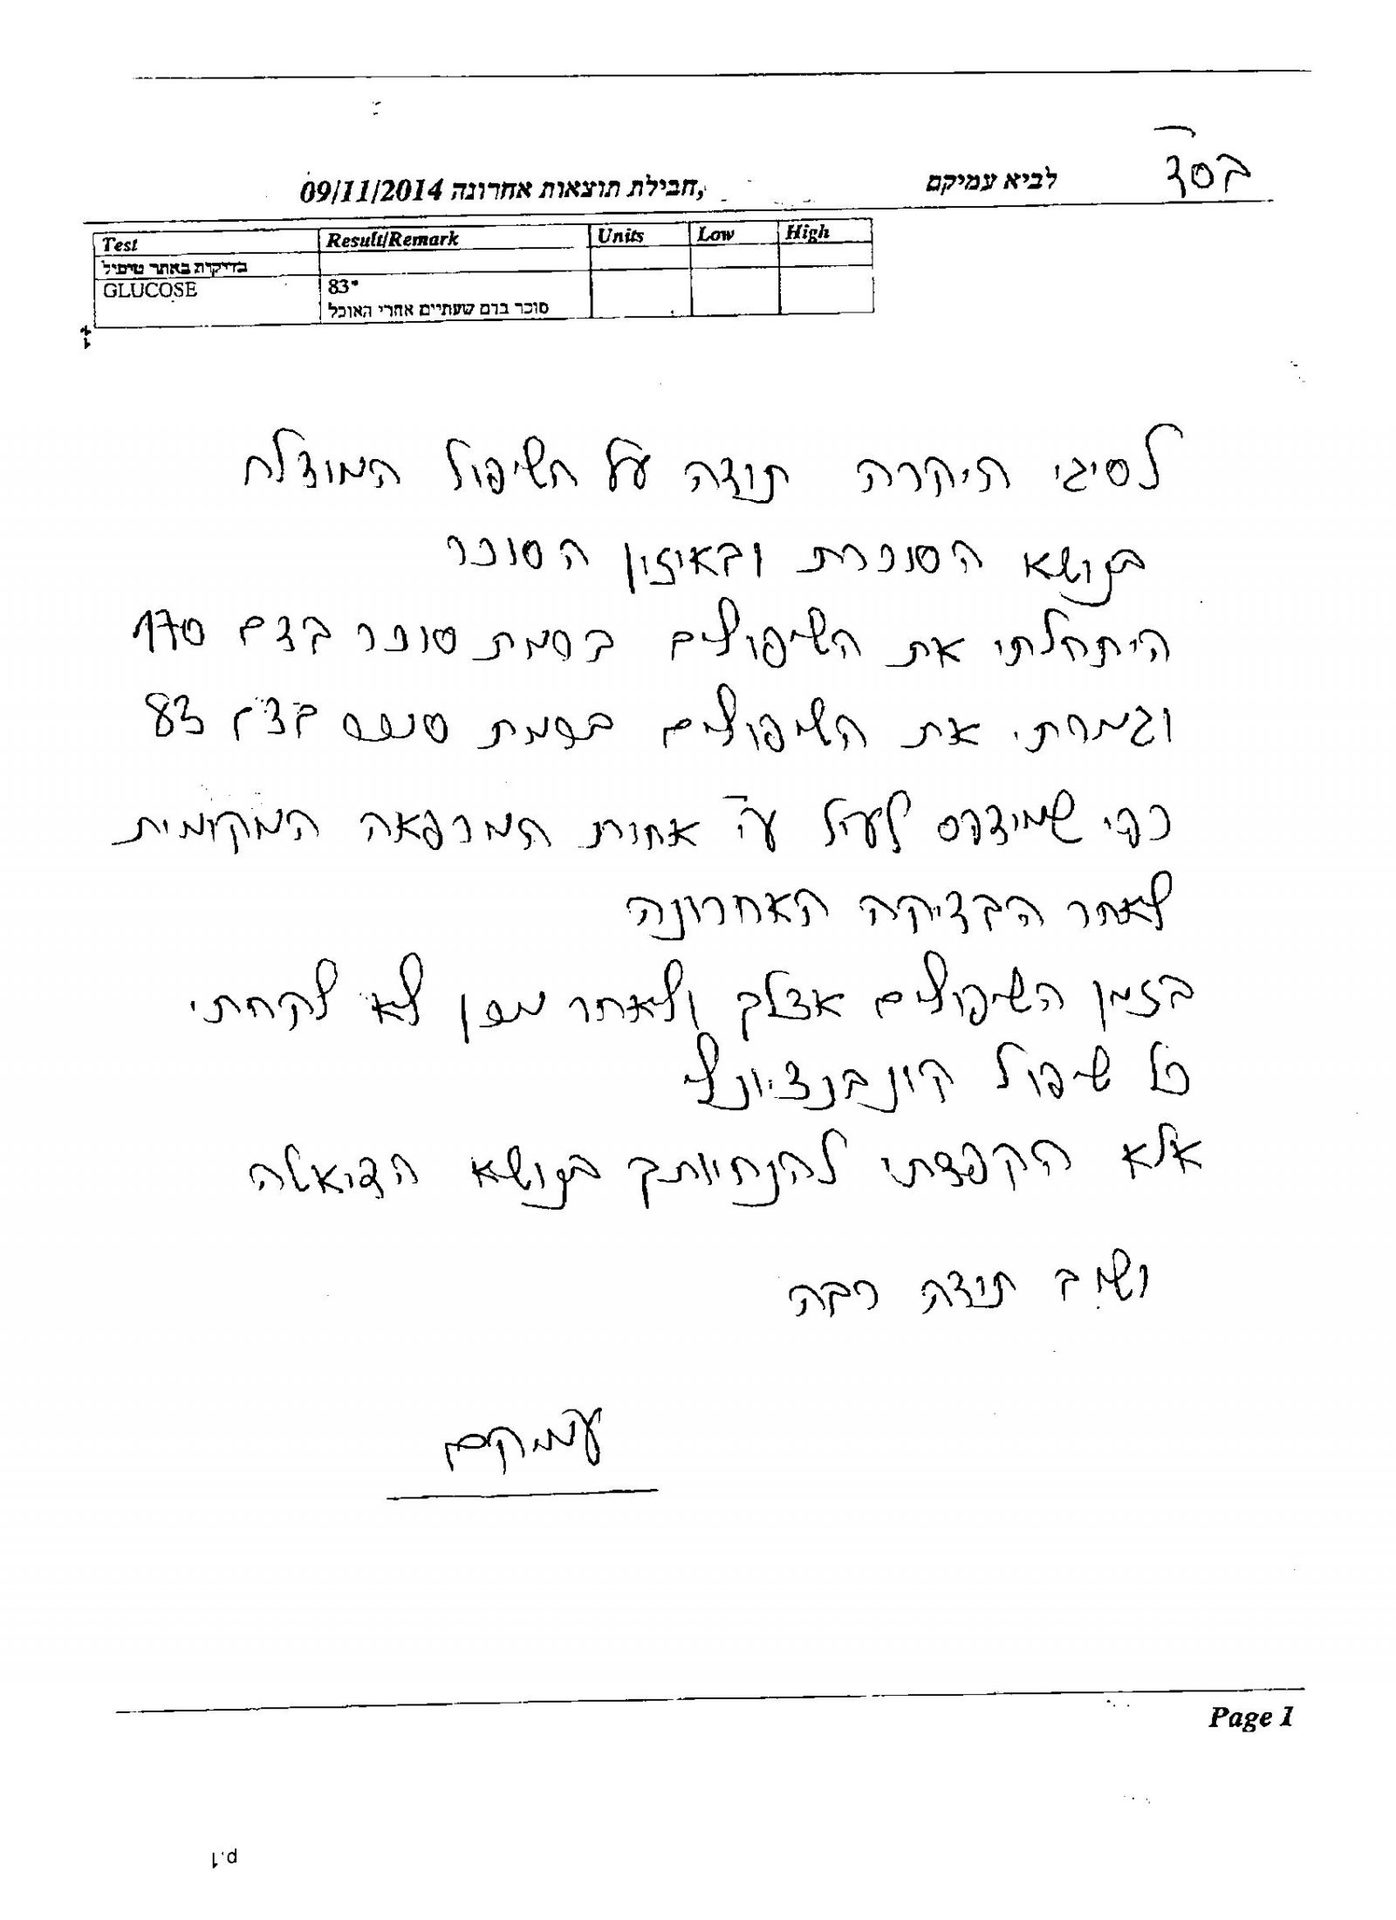 בסד
לביא עמיקם
חבילת תוצאות אחרונה 09/11/2014,
Test Result/Remark Units Low High
בדיקות באתר טיפול
GLUCOSE 83*
סוכר בדם שעתיים אחרי האוכל
לסיגי היקרה תודה על הטיפול המוצלח
בנושא הסוכרת ובאיזון הסוכר
היתחלתי את הטיפולים ברמת סוכר בדם 170
וגמרתי את הטיפולים ברמת סוכר בדם 83
כפי שמודפס לעיל ע״י אחות המרפאה המקומית
לאחר הבדיקה האחרונה
בזמן הטיפולים אצלך ולאחר מכן לא לקחתי
כל טיפול קונבנציונלי
אלא הקפדתי להנחיותך בנושא הדיאטה
ושוב תודה רבה
עמיקם
Page 1
p.1